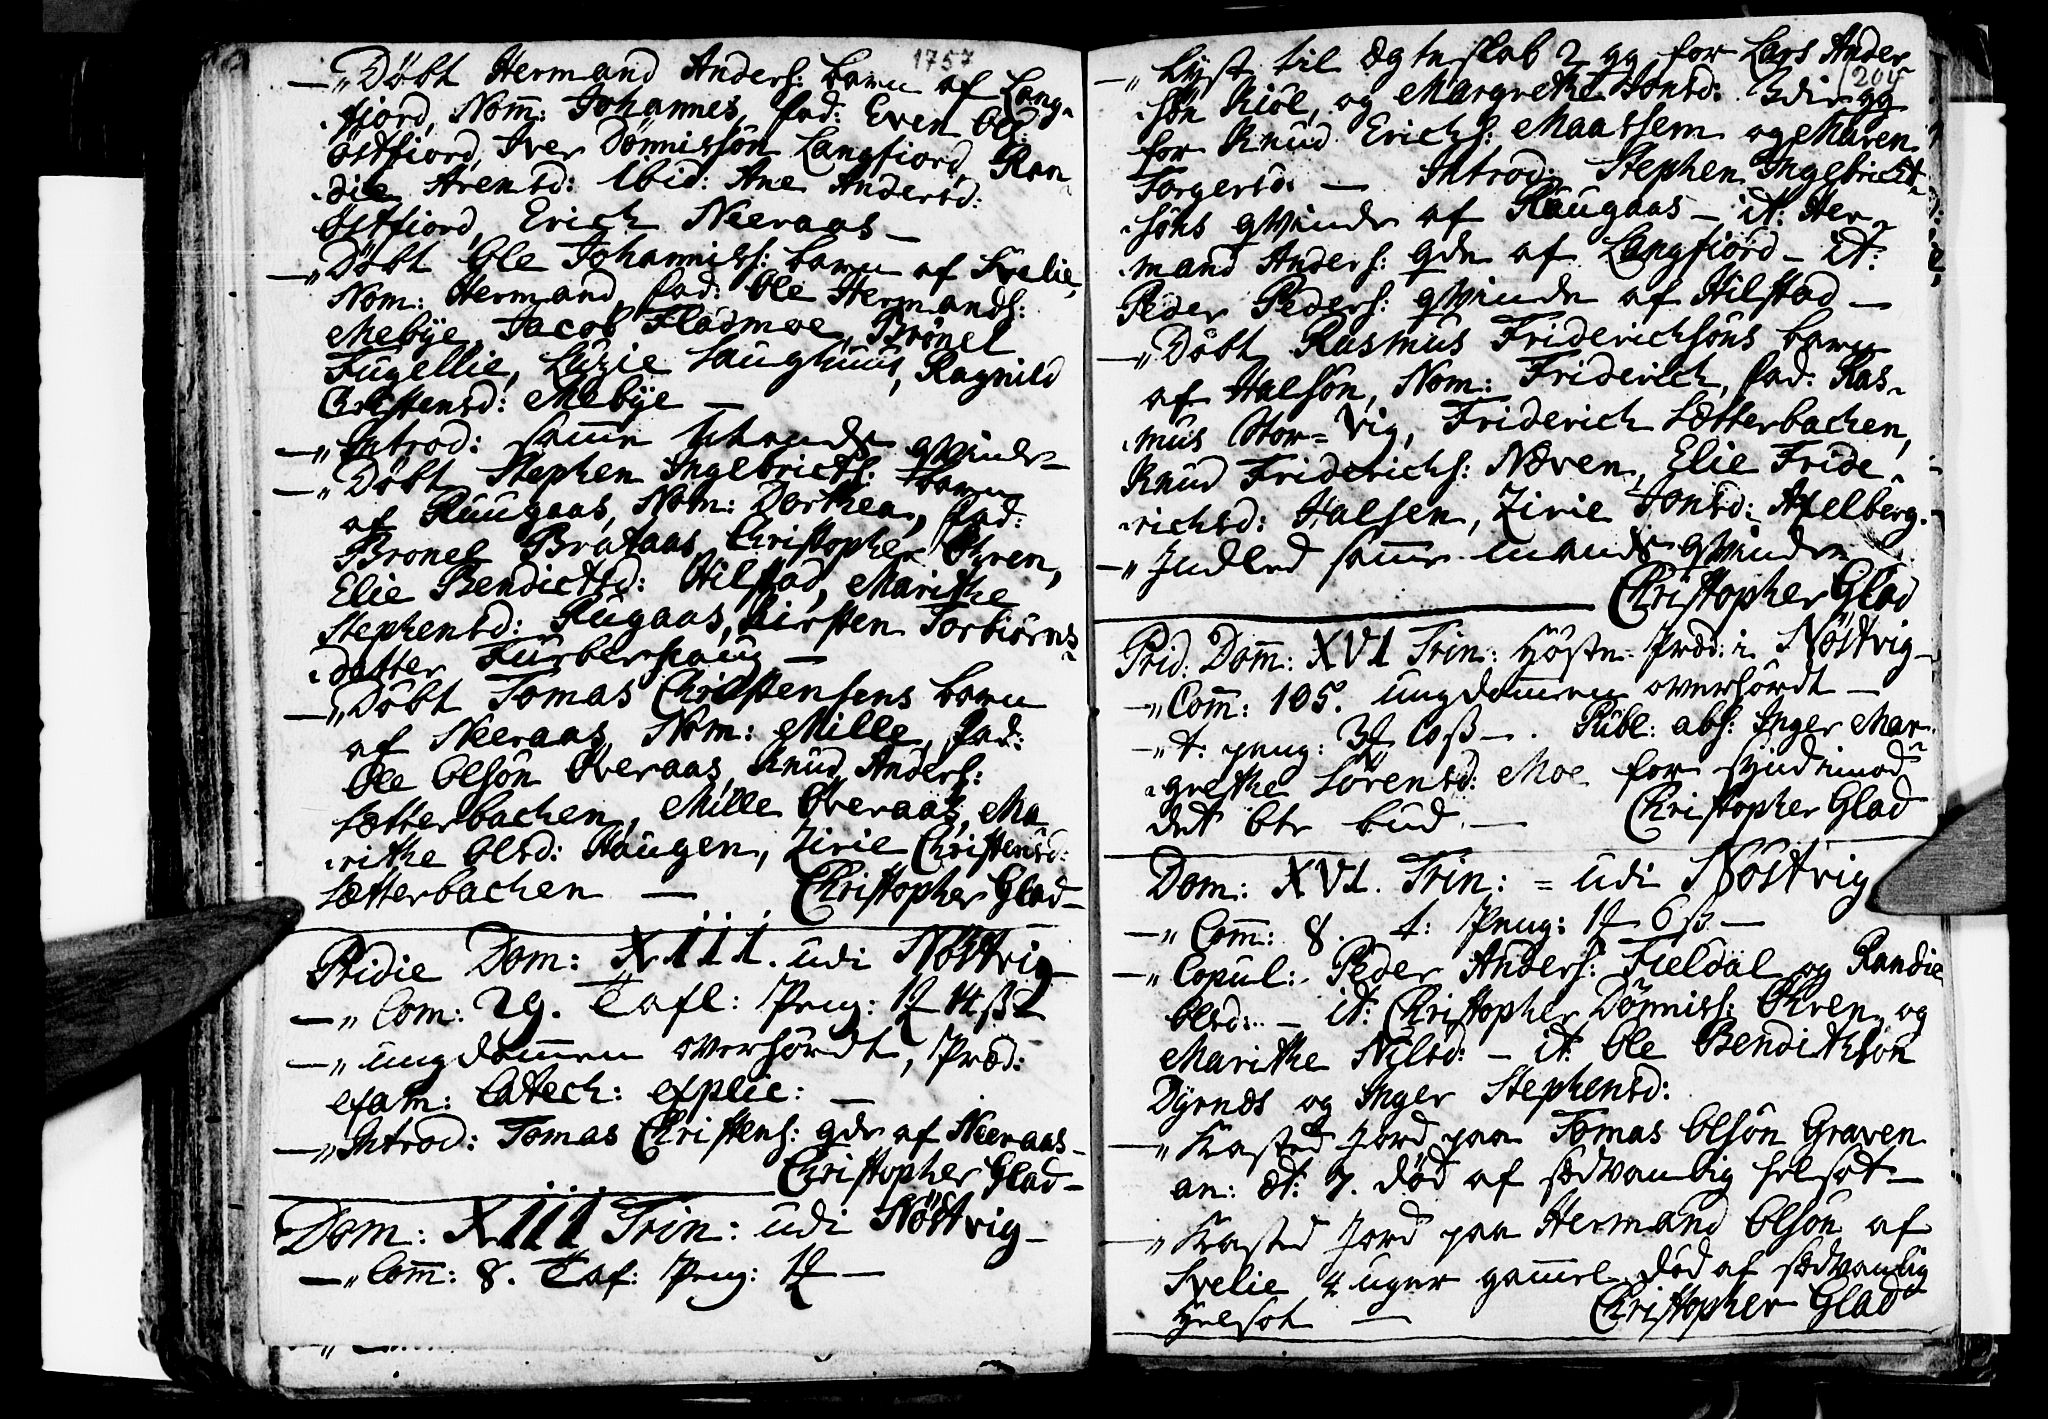 1757
—„ Döbt Hermand Anders: barn af Lang-
fiord, Nom̄: Johannes, fad: Even Ols:
Østfiord, Iver Dönnissön Langfiord, Ran-
die Arensd: Ibid: Ane Andersd:
Østfiord, Erich Neeraas —
—„ Döbt Ole Johanniss: barn af Svelie,
Nom: Hermand, fad: Ole Hermands:
Mebÿe, Jacob Fladmoe, Brönel
Fugellie, Luzie Laughuus, Ragnild
Christensd: Mebÿe —
—„ Introd: samme Mands qvinde —
—„ Döbt Stephen Ingebricts: barn
af Ruugaas, Nom: Dorthea, fad:
Bronel Brataas, Christopher Øhren,
Elie Bendictsd: Hilstad, Marithe
Stephensd: Rugaas, Kirsten Torbiörns-
datter Furberhaug —
—„ Döbt Tomas Christensens barn
af Neeraas, Nom: Mille, fad:
Ole Olsön Øveraas, Knud Anders:
Sætterbachen, Mille Øveraas, Ma-
rithe Olsd: Haugen, Zirie Christensd:
Sætterbachen — Christopher Glad —
Pridie Dom: XIII. udi Nöstvig
—„ Com: 29. Tafl: Peng: 1 14 ß
—„ ungdommen overhördt, Præd:
exam: Catech: explic: —
—„ Introd: Tomas Christens: qde af Neeraas —
Christopher Glad —
Dom: XIII Trin: udi Nöstvig —
—„ Com̄: 8. Taf: Peng: 1 —
204
—„ Lyst til Ægteskab 2 gg for Lars Ander-
sön Kiöl, og Margrethe Jonsd: 3die gg
for Knud Erichs: Maassem og Maren
Torgersd: — Introd: Stephen Ingebrict-
söns qvinde af Raugaas — it: Her-
mand Anders: qde af Langfiord — it:
Peder Peders: qvinde af Hilstad —
—„ Döbt Rasmus Friderichsöns barn
af Halsön, Nom: Friderich, fad: Ras-
mus Stor=Vig, Friderich Sætterbachen,
Knud Friderichs: Næven, Elie Fride-
richsd: Halsen, Zirie Jonsd: Axelberg.
—„ Indled samme mands qvinde
Christopher Glad
Prid: Dom̄: XVI Trin: Höste-Præd: i Nöstvig —
—„ Com̄: 105. ungdommen overhördt —
—„ t: peng: 3 10 ß —. Publ: abs: Inger Mar-
grethe Sörensd: Moe for synd imod
det 6te bud. — Christopher Glad
Dom: XVI. Trin: = udi Nöstvig
—„ Com̄: 8. t: Peng: 1 6 ß —
—„ Copul: Peder Anders: Fieldal og Randie
Olsd: — it: Christopher Dönniss: Øhren og
Marithe Nilsd: — it: Ole Bendithsön
Dyrnæs og Inger Stephensd:
—„ Kasted Jord paa Tomas Olsön Graven
an: æt: 7. död af sædvanlig helsot —
—„ Kasted Jord paa Hermand Olsön af
Svelie 4 uger gammel död af sædvanlig
Helsot — Christopher Glad